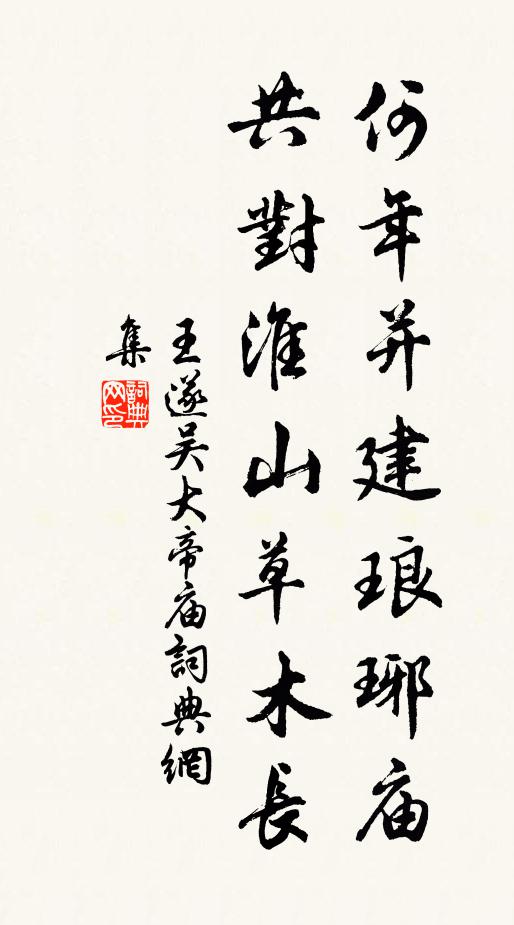 何年并建琅琊庙
共對淮山草木長
王遂吴大帝庙詞典網
集
詞典网印